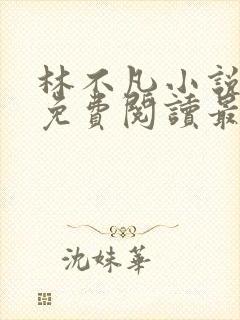 林不凡小說
免費閱讀最
沈妹華